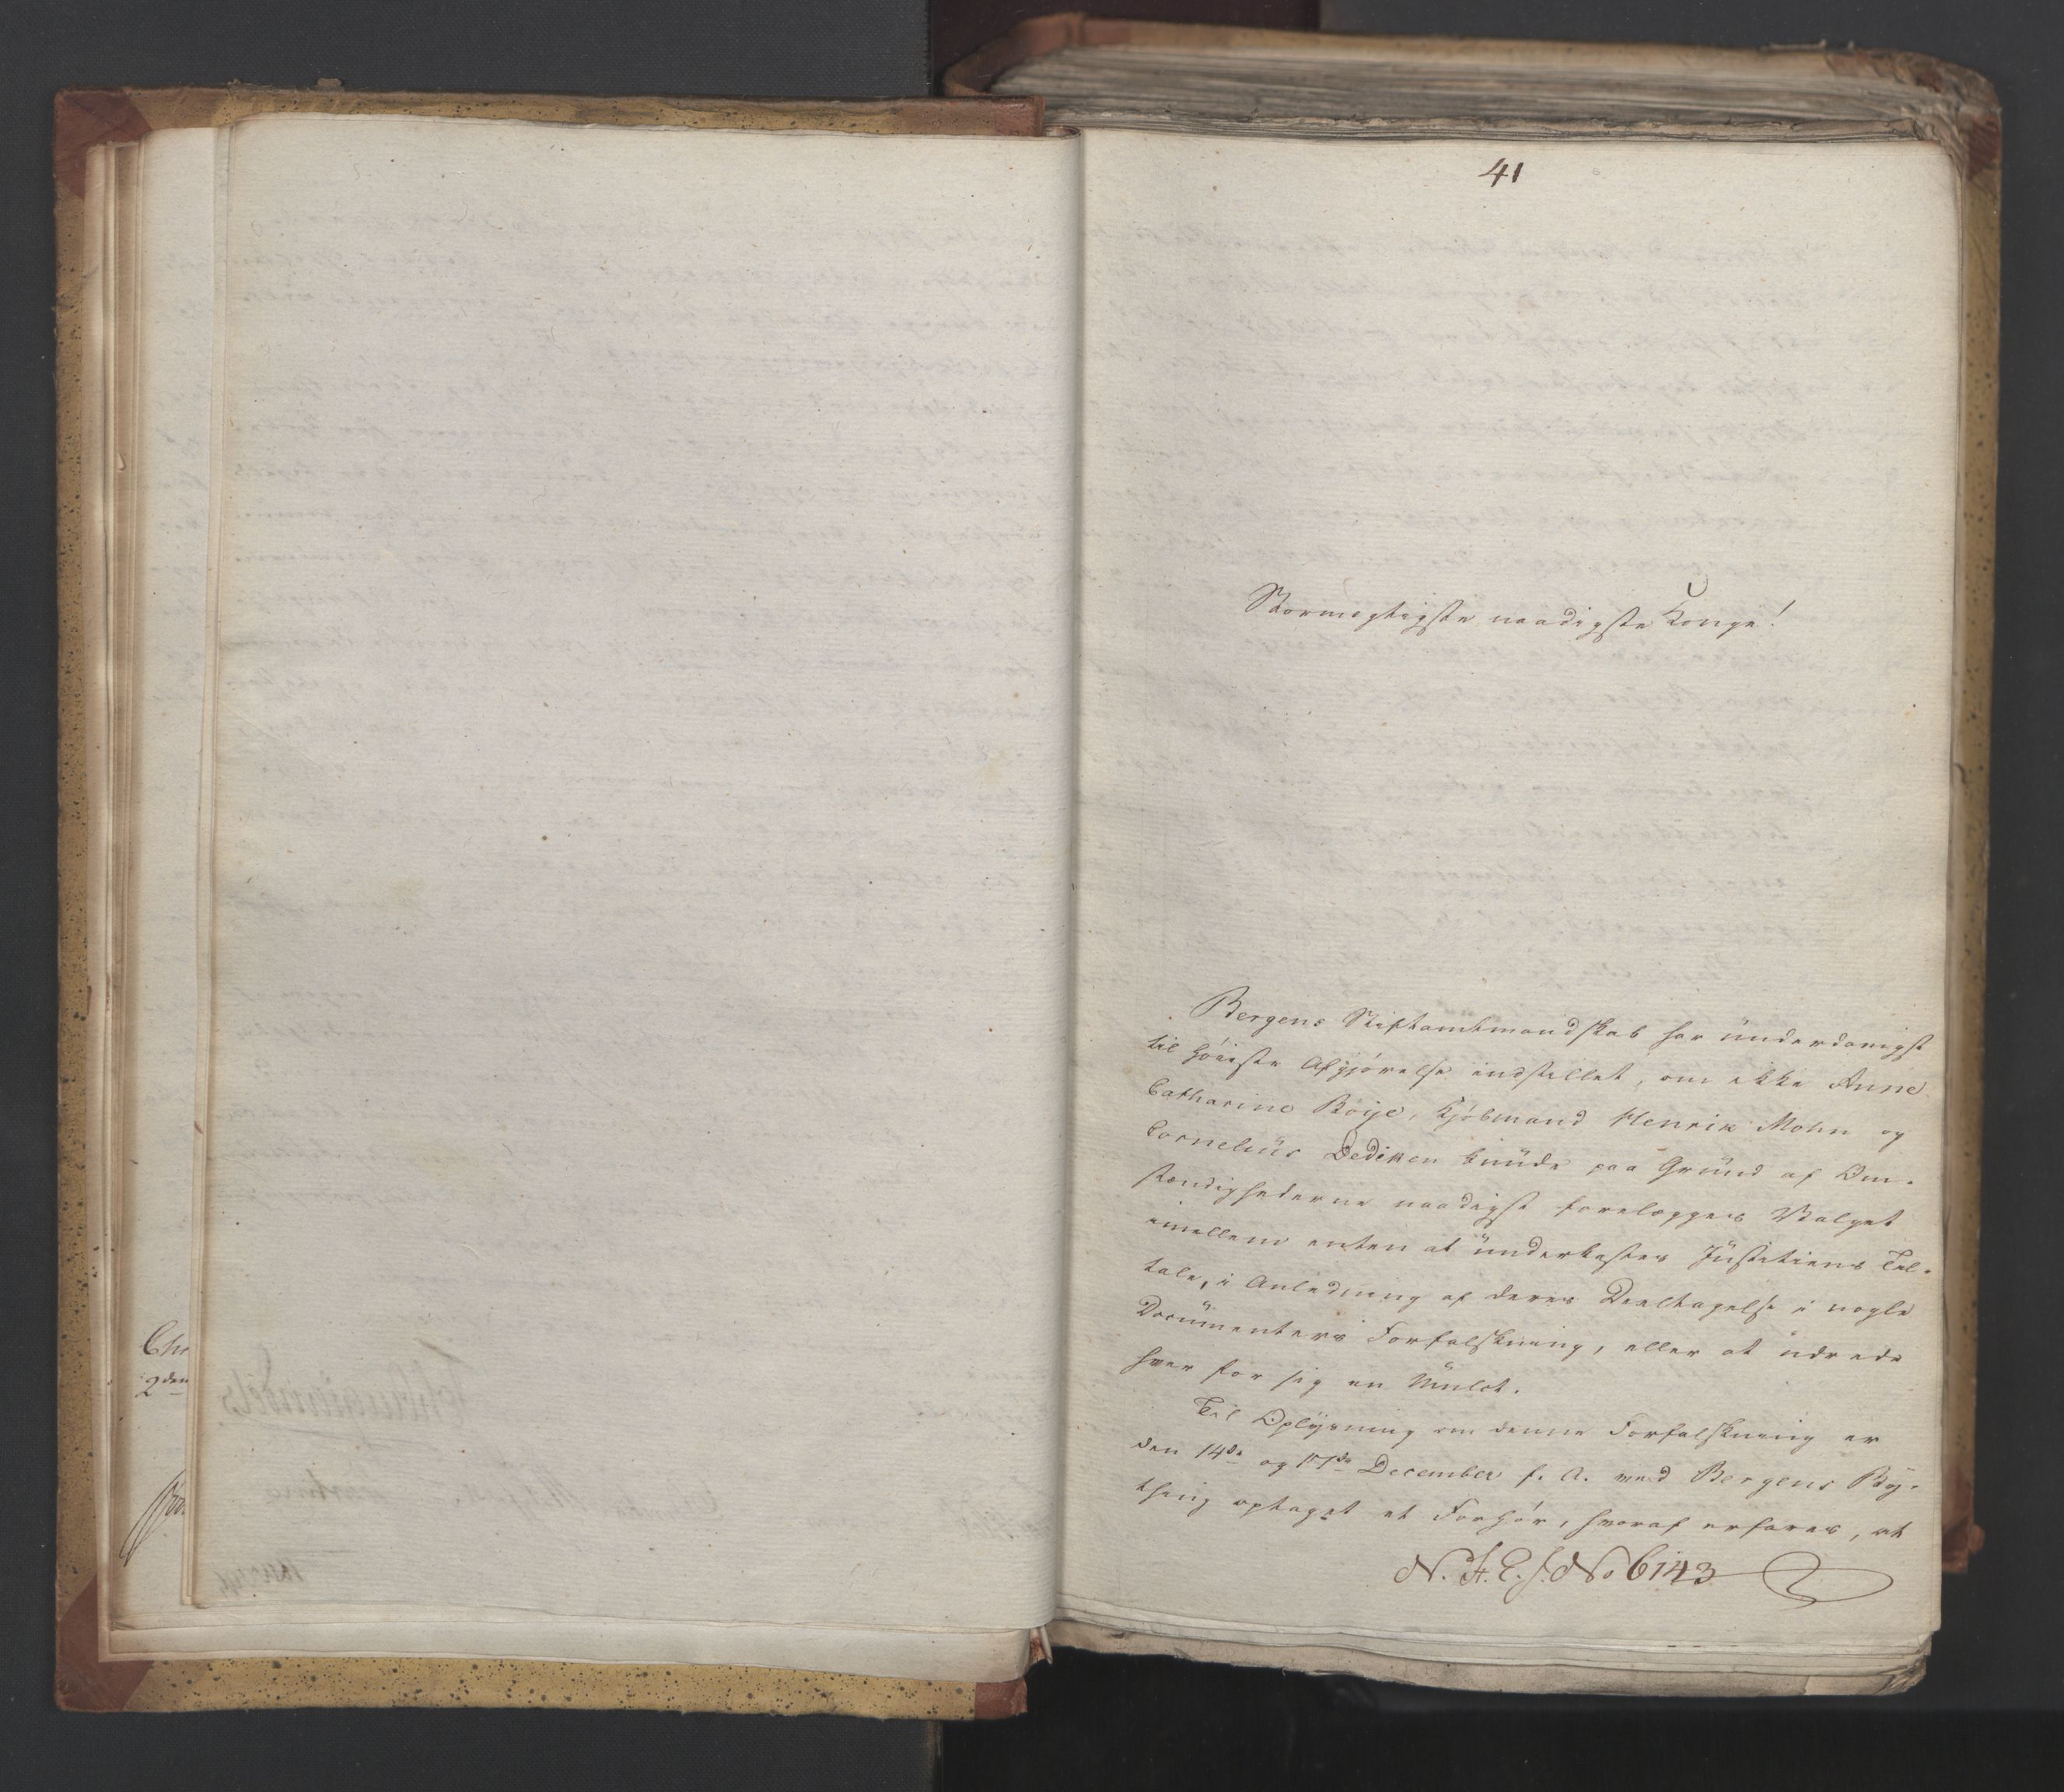 41
Stormægtigste naadigste Konge!
Bergens Stiftamtmandskab har underdanigst
til Høieste Afgjørelse indstillet, om ikke Anne
Catharine Böije, Kjöbmand Henrik Mohn og
Cornelius Dediken burde paa Grund af Om-
stændighederne naadigst forelægges Valget
imellem enten at underkastes Justitiens Til-
tale, i Anledning af deres Deeltagelse i nogle
Documenters Forfalskning, eller at udrede
hver for sig en Mulct.
Til Oplysning om denne Forfalskning er
den 14de og 17de December f. A. ved Bergens By-
thing optaget et Forhør, hvoraf erfares, at
Chr
2den
N. H. E. J. No 6143